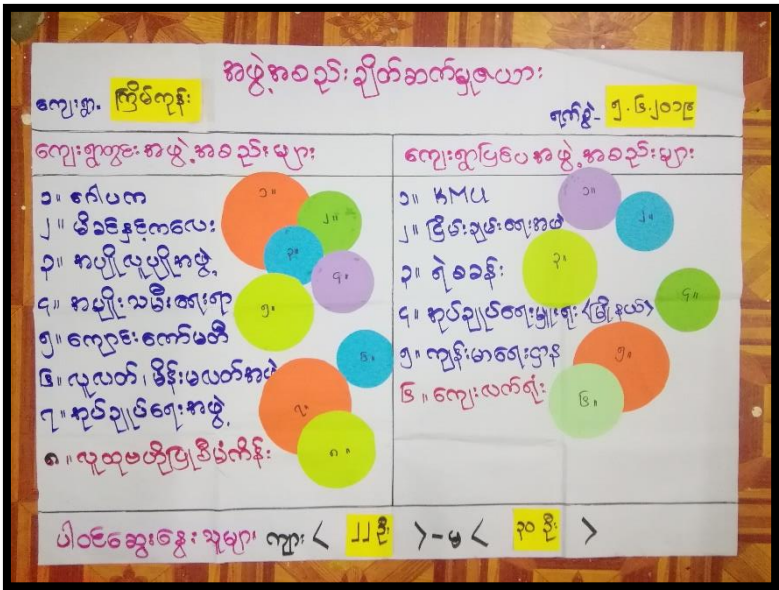 အဖွဲ့အစည်းချိတ်ဆက်မှုဇယား
ကျေးရွာ. ကြိမ်ကုန်း
ရက်စွဲ- ၅.၆.၂၀၁၉
ကျေးရွာတွင်းအဖွဲ့အစည်းများ
၁။ ဂေါပက
၂။ မိခင်နှင့်ကလေး
၃။ အပျိုလူပျိုအဖွဲ့
၄။ အမျိုးသမီးရေးရာ
၅။ ကျောင်းကော်မတီ
၆။ လူလတ်၊ မိန်းမလတ်အဖွဲ့
၇။ အုပ်ချုပ်ရေးအဖွဲ့
၈။ လူထုဗဟိုပြုစီမံကိန်း
၁။
၂။
၃။
၄။
၅။
၆။
၇။
၈။
ကျေးရွာပြင်ပအဖွဲ့အစည်းများ
၁။ KMU
၂။ ငြိမ်းချမ်းရေးအဖွဲ့
၃။ ရဲစခန်း
၄။ အုပ်ချုပ်ရေးမှူးရုံး <မြို့နယ်>
၅။ ကျန်းမာရေးဌာန
၆။ ကျေးလက်ရုံး
၁။
၂။
၃။
၄။
၅။
၆။
ပါဝင်ဆွေးနွေးသူများ ကျား < ၂၂ ဦး > - မ < ၃၀ ဦး >